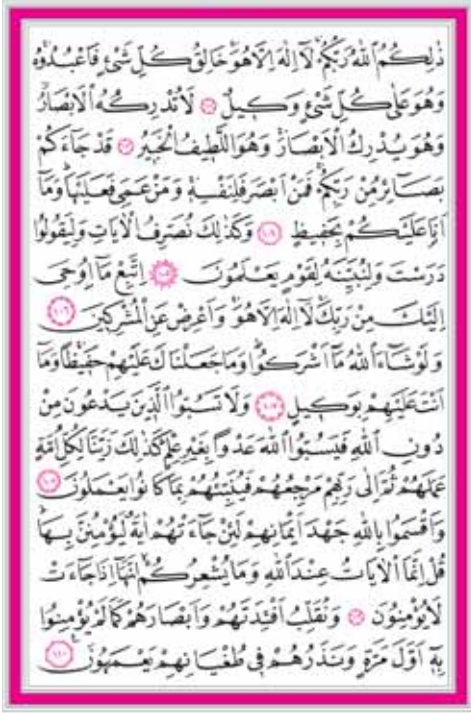 ذٰلِكُمُ اللّٰهُ رَبُّكُمْ لَٓا اِلٰهَ اِلَّا هُوَۚ خَالِقُ كُلِّ شَيْءٍ فَاعْبُدُوهُۚ
وَهُوَ عَلٰى كُلِّ شَيْءٍ وَكِيلٌ ﴿١٠٢﴾ لَا تُدْرِكُهُ الْاَبْصَارُۘ
وَهُوَ يُدْرِكُ الْاَبْصَارَۚ وَهُوَ اللَّطِيفُ الْخَبِيرُ ﴿١٠٣﴾ قَدْ جَٓاءَكُمْ
بَصَٓائِرُ مِنْ رَبِّكُمْۚ فَمَنْ اَبْصَرَ فَلِنَفْسِهٖۚ وَمَنْ عَمِيَ فَعَلَيْهَاۜ وَمَٓا
اَنَا۬ عَلَيْكُمْ بِحَفِيظٍ ﴿١٠٤﴾ وَكَذٰلِكَ نُصَرِّفُ الْاٰيَاتِ وَلِيَقُولُوا
دَرَسْتَ وَلِنُبَيِّنَهُ لِقَوْمٍ يَعْلَمُونَ ﴿١٠٥﴾ اِتَّبِعْ مَٓا اُو۫حِيَ
اِلَيْكَ مِنْ رَبِّكَۚ لَٓا اِلٰهَ اِلَّا هُوَۚ وَاَعْرِضْ عَنِ الْمُشْرِكِينَ ﴿١٠٦﴾
وَلَوْ شَٓاءَ اللّٰهُ مَٓا اَشْرَكُواۜ وَمَا جَعَلْنَاكَ عَلَيْهِمْ حَفِيظًاۚ وَمَٓا
اَنْتَ عَلَيْهِمْ بِوَكِيلٍ ﴿١٠٧﴾ وَلَا تَسُبُّوا الَّذِينَ يَدْعُونَ مِنْ
دُونِ اللّٰهِ فَيَسُبُّوا اللّٰهَ عَدْوًا بِغَيْرِ عِلْمٍۜ كَذٰلِكَ زَيَّنَّا لِكُلِّ اُمَّةٍ
عَمَلَهُمْۖ ثُمَّ اِلٰى رَبِّهِمْ مَرْجِعُهُمْ فَيُنَبِّئُهُمْ بِمَا كَانُوا يَعْمَلُونَ ﴿١٠٨﴾
وَاَقْسَمُوا بِاللّٰهِ جَهْدَ اَيْمَانِهِمْ لَئِنْ جَٓاءَتْهُمْ اٰيَةٌ لَيُؤْمِنُنَّ بِهَاۜ
قُلْ اِنَّمَا الْاٰيَاتُ عِنْدَ اللّٰهِ وَمَا يُشْعِرُكُمْۙ اَنَّهَٓا اِذَا جَٓاءَتْ
لَا يُؤْمِنُونَ ﴿١٠٩﴾ وَنُقَلِّبُ اَفْـِٔدَتَهُمْ وَاَبْصَارَهُمْ كَمَا لَمْ يُؤْمِنُوا
بِهٖٓ اَوَّلَ مَرَّةٍ وَنَذَرُهُمْ فِي طُغْيَانِهِمْ يَعْمَهُونَ ﴿١١٠﴾